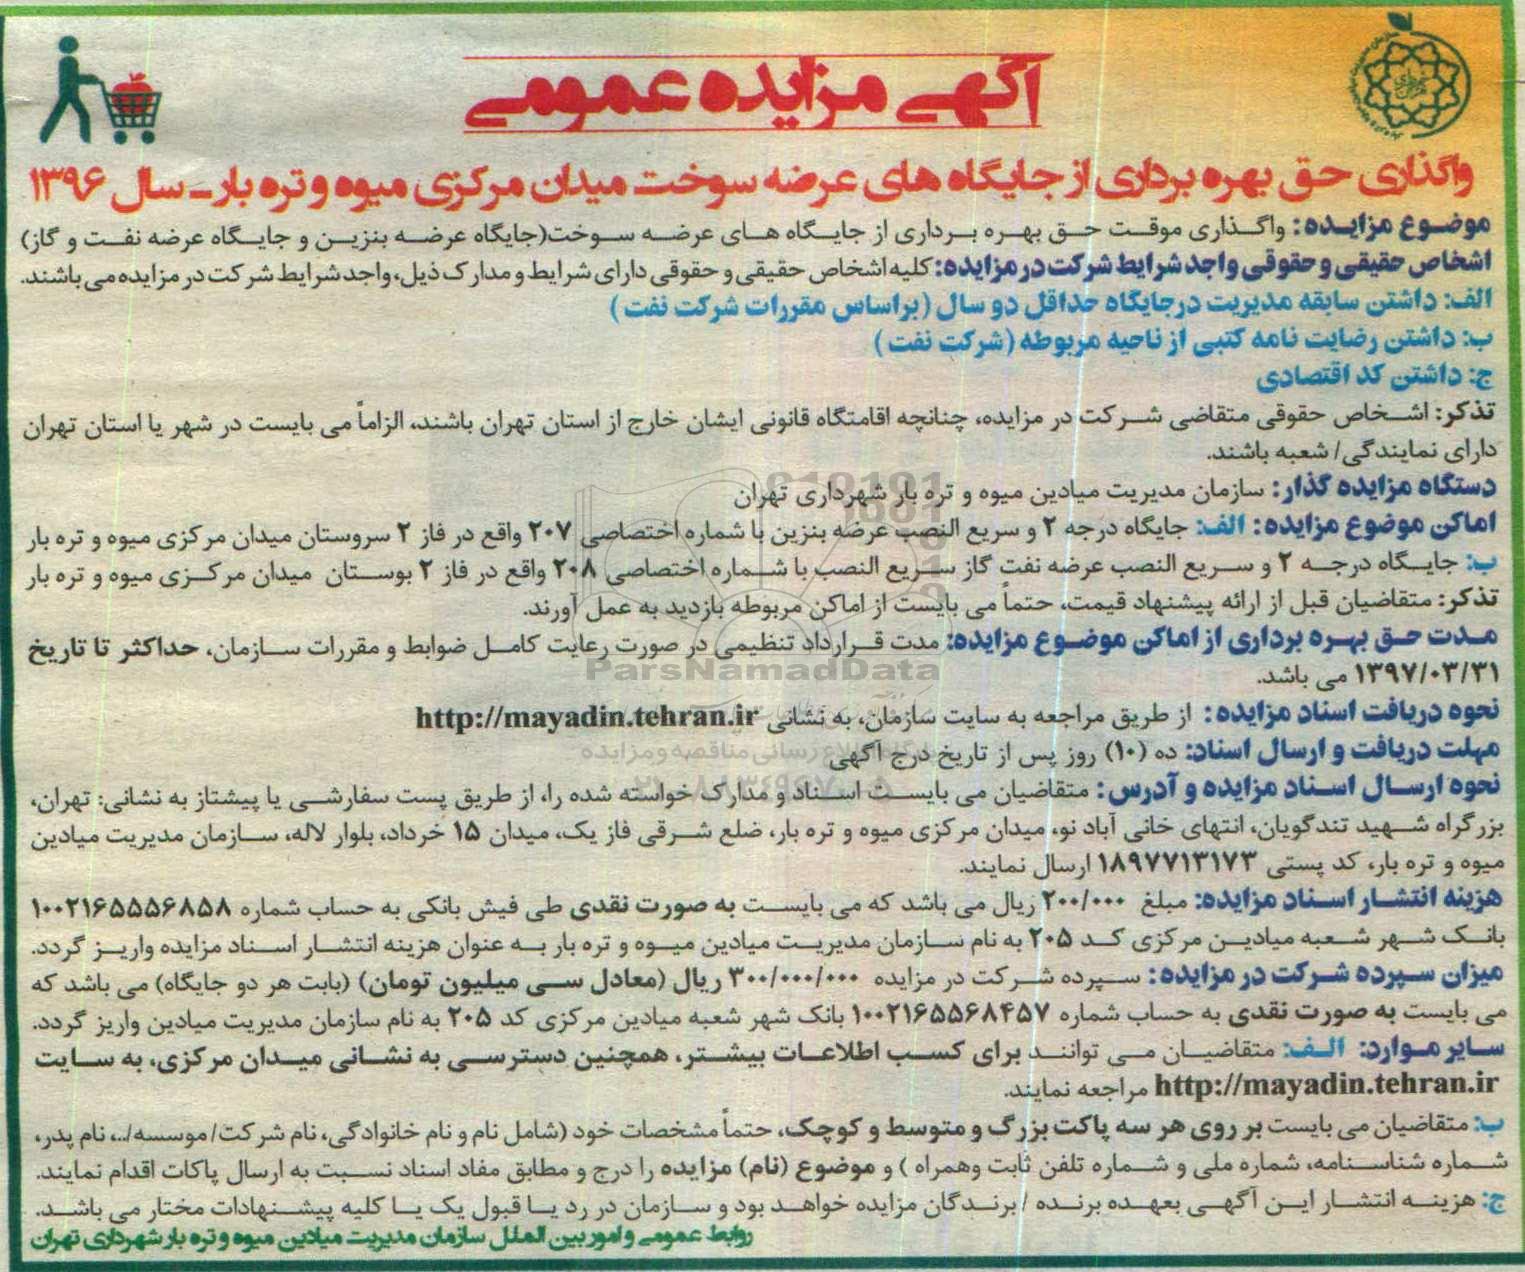 آگهی مزایده عمومی
واگذاری حق بهره برداری از جایگاه های عرضه سوخت میدان مرکزی میوه و تره بار ـ سال ۱۳۹۶
موضوع مزایده: واگذاری موقت حق بهره برداری از جایگاه های عرضه سوخت(جایگاه عرضه بنزین و جایگاه عرضه نفت و گاز)
اشخاص حقیقی و حقوقی واجد شرایط شرکت در مزایده: کلیه اشخاص حقیقی و حقوقی دارای شرایط و مدارک ذیل، واجد شرایط شرکت در مزایده می باشند.
الف: داشتن سابقه مدیریت درجایگاه حداقل دو سال (براساس مقررات شرکت نفت)
ب: داشتن رضایت نامه کتبی از ناحیه مربوطه (شرکت نفت)
ج: داشتن کد اقتصادی
تذکر: اشخاص حقوقی متقاضی شرکت در مزایده، چنانچه اقامتگاه قانونی ایشان خارج از استان تهران باشند، الزاماً می بایست در شهر یا استان تهران
دارای نمایندگی/ شعبه باشند.
دستگاه مزایده گذار: سازمان مدیریت میادین میوه و تره بار شهرداری تهران
اماکن موضوع مزایده: الف: جایگاه درجه ۲ و سریع النصب عرضه بنزین با شماره اختصاصی ۲۰۷ واقع در فاز ۲ سروستان میدان مرکزی میوه و تره بار
ب: جایگاه درجه ۲ و سریع النصب عرضه نفت گاز سریع النصب با شماره اختصاصی ۲۰۸ واقع در فاز ۲ بوستان میدان مرکزی میوه و تره بار
تذکر: متقاضیان قبل از ارائه پیشنهاد قیمت، حتماً می بایست از اماکن مربوطه بازدید به عمل آورند.
مدت حق بهره برداری از اماکن موضوع مزایده: مدت قرارداد تنظیمی در صورت رعایت کامل ضوابط و مقررات سازمان، حداکثر تا تاریخ
ParsNamadData
۱۳۹۷/۰۳/۳۱ می باشد.
نحوه دریافت اسناد مزایده: از طریق مراجعه به سایت سازمان، به نشانی http://mayadin.tehran.ir
مهلت دریافت و ارسال اسناد: ده (۱۰) روز پس از تاریخ درج آگهی
پایگاه اطلاع رسانی مناقصه و مزایده
نحوه ارسال اسناد مزایده و آدرس: متقاضیان می بایست اسناد و مدارک خواسته شده را، از طریق پست سفارشی یا پیشتاز به نشانی: تهران،
بزرگراه شهید تندگویان، انتهای خانی آباد نو، میدان مرکزی میوه و تره بار، ضلع شرقی فاز یک، میدان ۱۵ خرداد، بلوار لاله، سازمان مدیریت میادین
میوه و تره بار، کد پستی ۱۸۹۷۷۱۳۱۷۳ ارسال نمایند.
هزینه انتشار اسناد مزایده: مبلغ ۲۰۰/۰۰۰ ریال می باشد که می بایست به صورت نقدی طی فیش بانکی به حساب شماره ۱۰۰۲۱۶۵۵۵۶۸۵۸
بانک شهر شعبه میادین مرکزی کد ۲۰۵ به نام سازمان مدیریت میادین میوه و تره بار به عنوان هزینه انتشار اسناد مزایده واریز گردد.
میزان سپرده شرکت در مزایده: سپرده شرکت در مزایده ۳۰۰/۰۰۰/۰۰۰ ریال (معادل سی میلیون تومان) (بابت هر دو جایگاه) می باشد که
می بایست به صورت نقدی به حساب شماره ۱۰۰۲۱۶۵۵۶۸۴۵۷ بانک شهر شعبه میادین مرکزی کد ۲۰۵ به نام سازمان مدیریت میادین واریز گردد.
سایر موارد: الف: متقاضیان می توانند برای کسب اطلاعات بیشتر، همچنین دسترسی به نشانی میدان مرکزی، به سایت
http://mayadin.tehran.ir مراجعه نمایند.
ب: متقاضیان می بایست بر روی هر سه پاکت بزرگ و متوسط و کوچک، حتماً مشخصات خود (شامل نام و نام خانوادگی، نام شرکت/ موسسه/..، نام پدر،
شماره شناسنامه، شماره ملی و شماره تلفن ثابت وهمراه ) و موضوع (نام) مزایده را درج و مطابق مفاد اسناد نسبت به ارسال پاکات اقدام نمایند.
ج: هزینه انتشار این آگهی بعهده برنده / برندگان مزایده خواهد بود و سازمان در رد یا قبول یک یا کلیه پیشنهادات مختار می باشد.
روابط عمومی و امور بین الملل سازمان مدیریت میادین میوه و تره بار شهرداری تهران